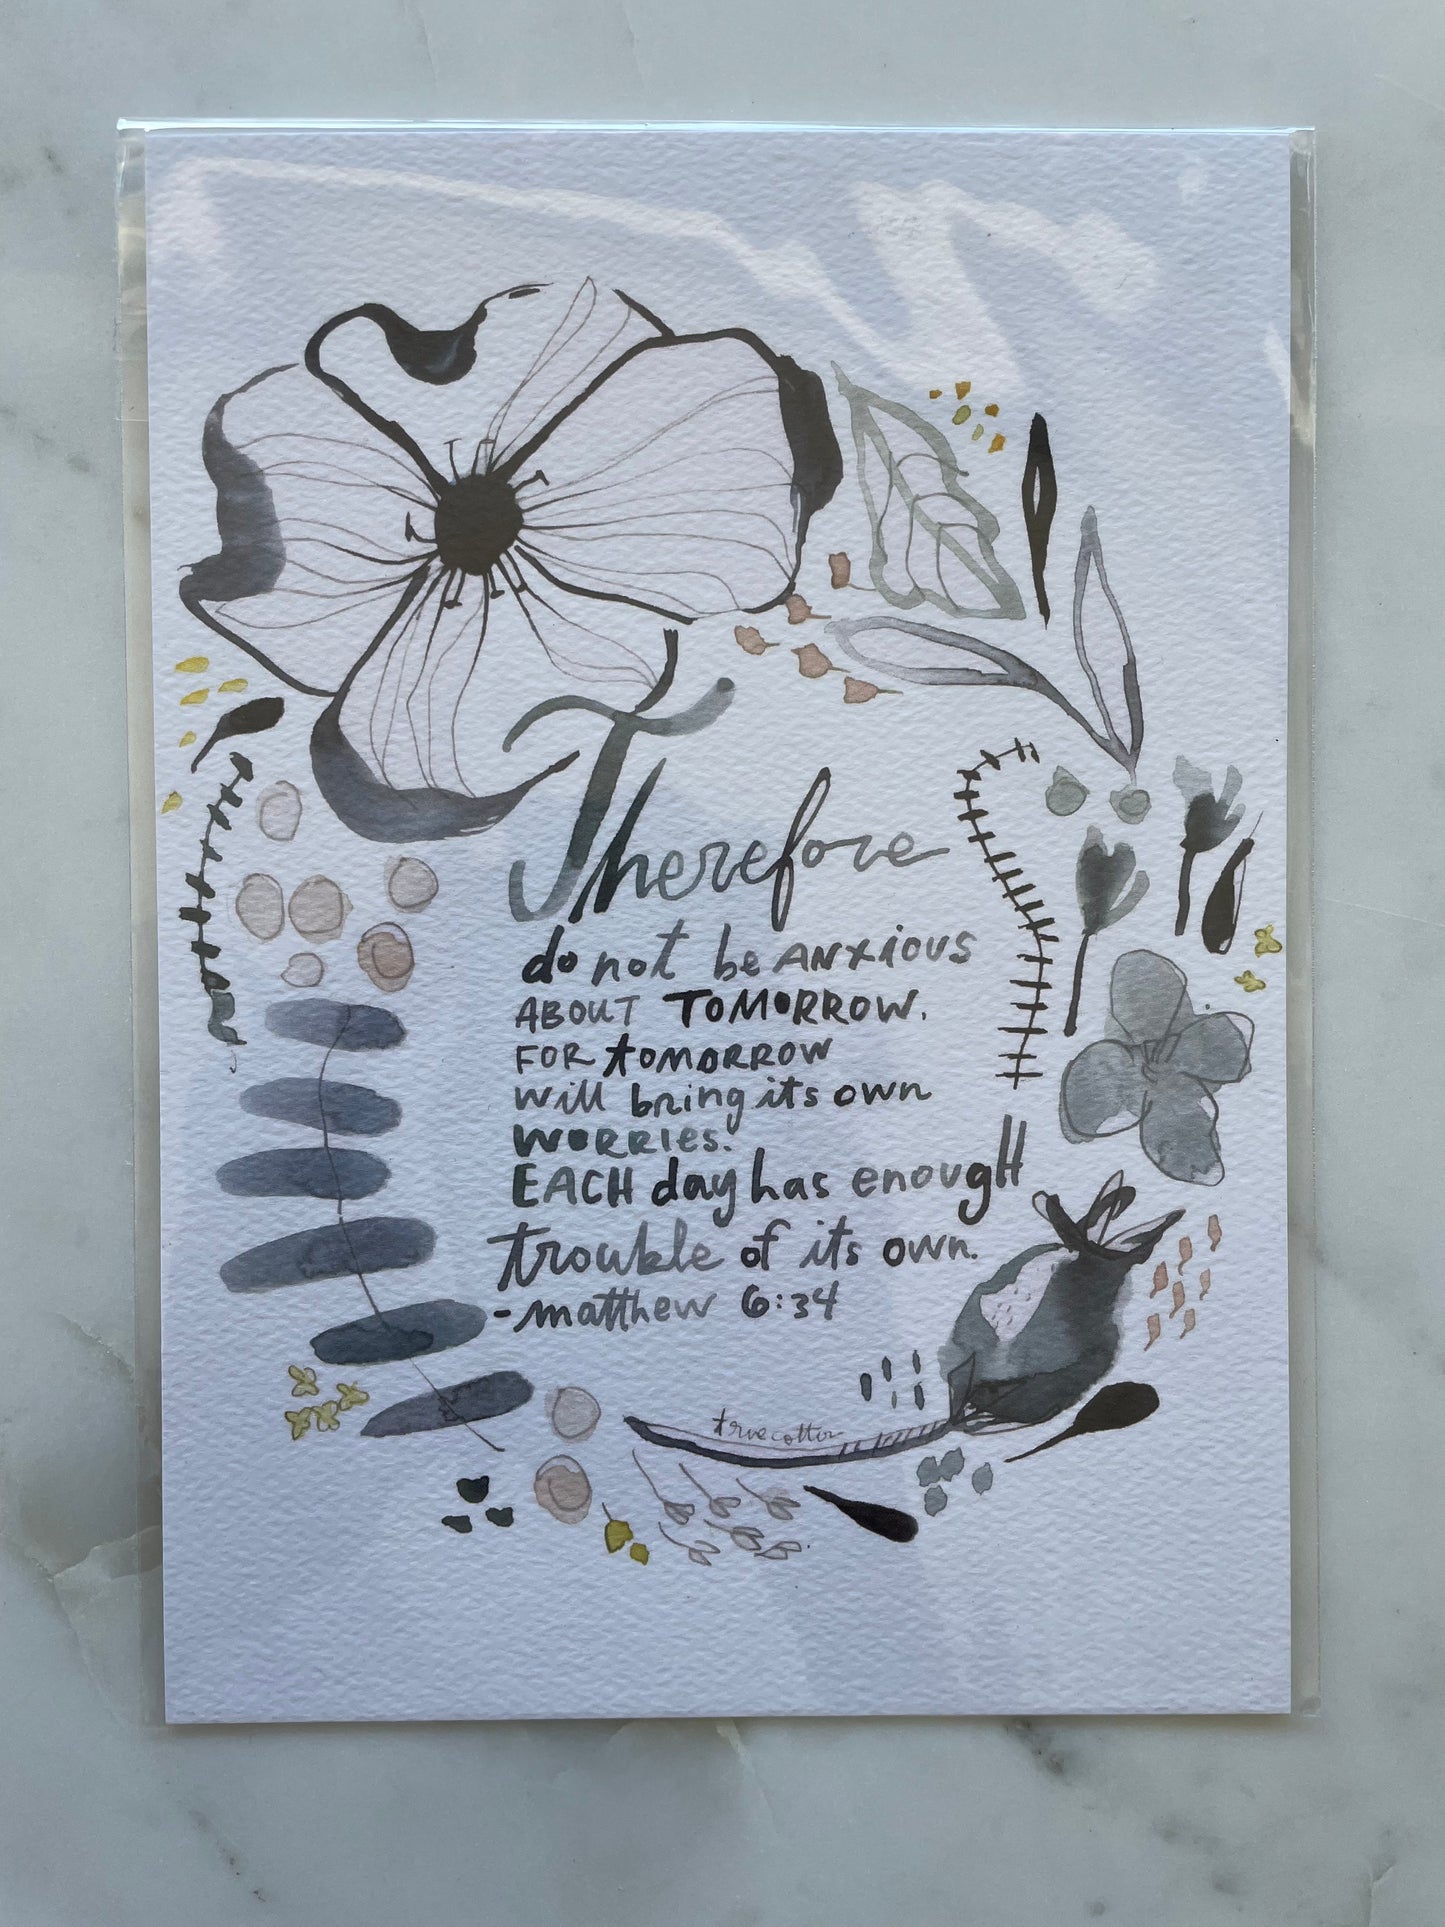 Therefore
do not be ANXiOUS
ABOUT TOMORROW.
FOR tOMORROW
will bring its own
WORRIES.
EACH day has enougH
trouble of its own.
-matthew 6:34
truecotton